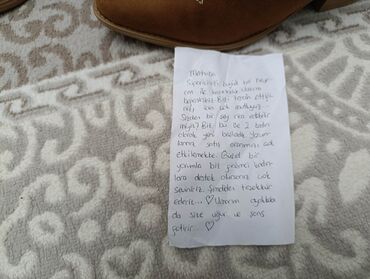 Merhaba
Siparişinizi büyük bir heyecan
ile hazırladık. Umarım
beğenirsiniz. Bizi tercih ettiğiniz
için çok mutluyuz.
Sizden bir şey rica edebilir
miyiz? Biz bu işe 2 kadın
olarak yeni başladık. Yorumlarınız
satış oranımızı çok
etkilemekte. Güzel bir
yorumla biz girişimci kadınlara
destek olursanız çok
seviniriz. Şimdiden teşekkür
ederiz... ♡ Umarım ayakkabı
da size uğur ve şans
getirir... ♡